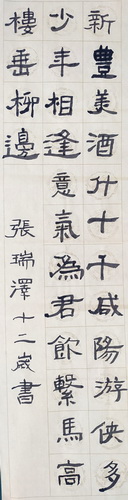 新豐美酒什十千咸陽游俠多
少年相逢意氣為君飲繫馬高
樓垂柳邊
張瑞澤十二歲書